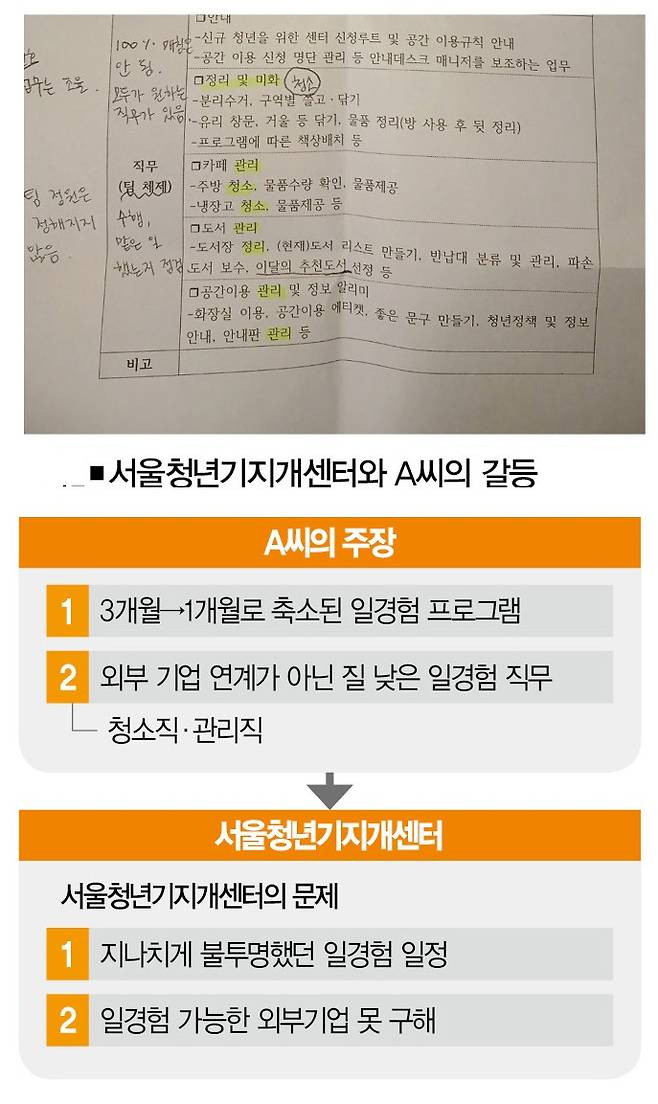 □안내
-신규 청년을 위한 센터 신청루트 및 공간 이용규칙 안내
-공간 이용 신청 명단 관리 등 안내데스크 매니저를 보조하는 업무
□정리 및 미화 청소
-분리수거, 구역별 쓸고·닦기
-유리 창문, 거울 등 닦기, 물품 정리(방 사용 후 뒷 정리)
-프로그램에 따른 책상배치 등
100% 매칭은
안 됨.
모두가 원하는
직무가 있음
조율.
직무
(팀 체제)
수행,
맡은 일
했는지 점검
팀 정원은
정해지지
않음.
□카페 관리
-주방 청소, 물품수량 확인, 물품제공
-냉장고 청소, 물품제공 등
□도서 관리
-도서장 정리, (현재)도서 리스트 만들기, 반납대 분류 및 관리, 파손
도서 보수, 이달의 추천도서 선정 등
□공간이용 관리 및 정보 알리미
-화장실 이용, 공간이용 에티켓, 좋은 문구 만들기, 청년정책 및 정보
안내, 안내판 관리 등
비고
■ 서울청년기지개센터와 A씨의 갈등
A씨의 주장
1 3개월→1개월로 축소된 일경험 프로그램
2 외부 기업 연계가 아닌 질 낮은 일경험 직무
청소직·관리직
서울청년기지개센터
서울청년기지개센터의 문제
1 지나치게 불투명했던 일경험 일정
2 일경험 가능한 외부기업 못 구해